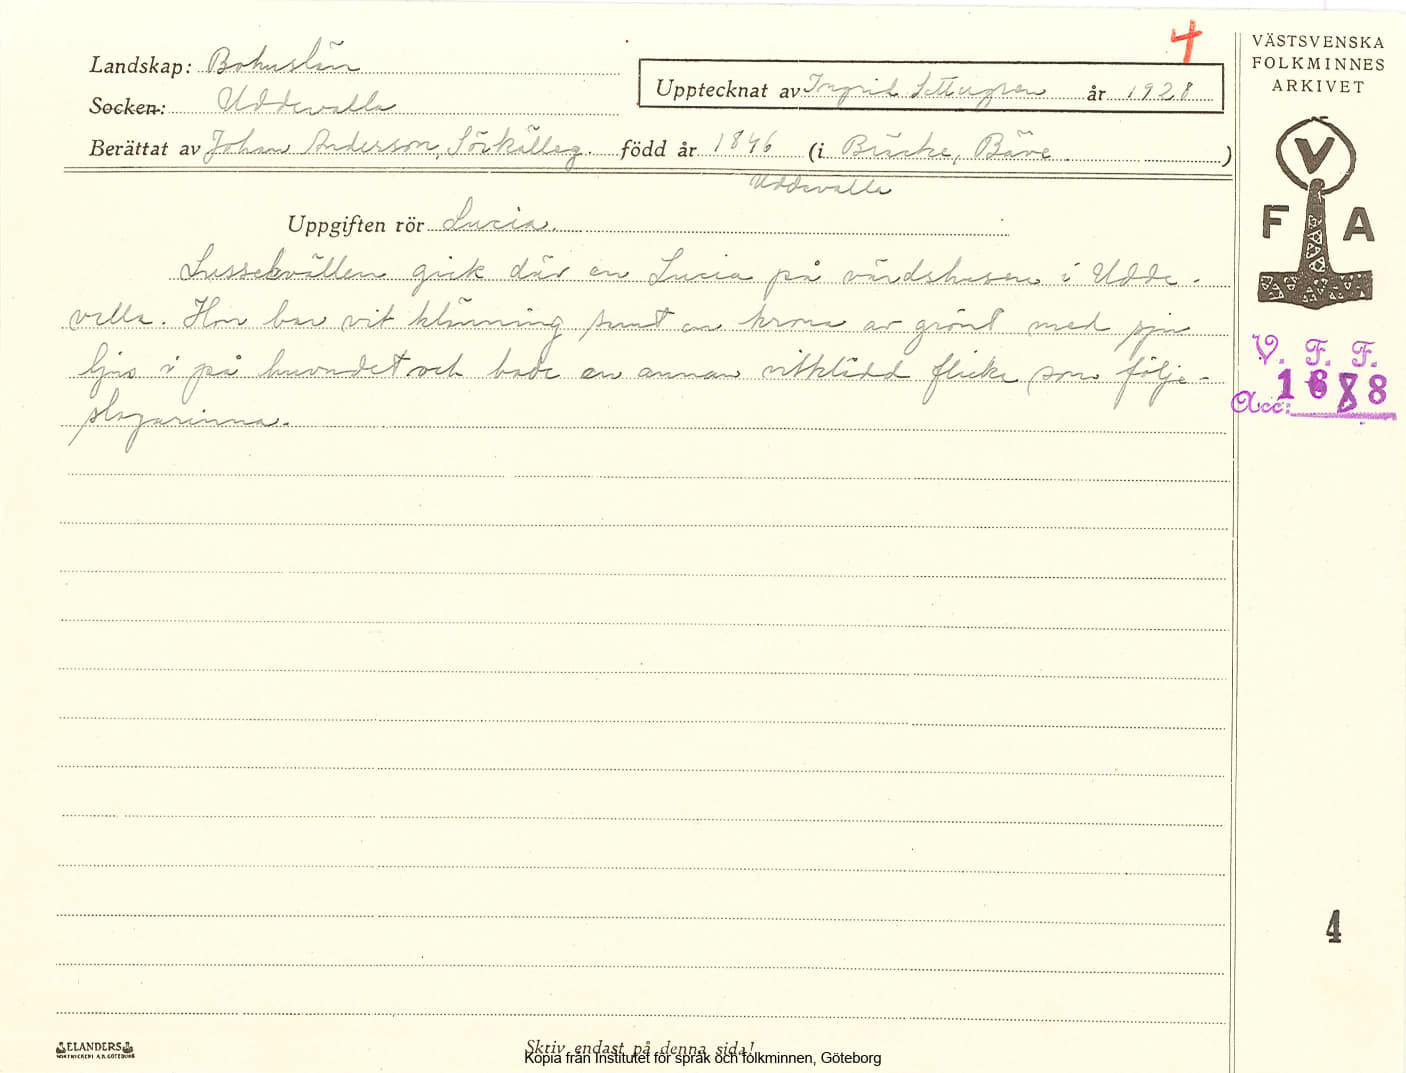 4
VÄSTSVENSKA
FOLKMINNES
ARKIVET
Landskap: Bohuslän
Upptecknat av Ingrid år 1928
Socken: Uddevalla
Berättat av Johan Anderson, född år 1846 (i Bäve )
Uddevalla
V
F A
Uppgiften rör Lucia.
Lussekvällen gick där en Lucia på värdshusen i Udde-
valla. Hon bar vit klänning samt en krona av grönt med sju
ljus i på huvudet och hade en annan vitklädd flicka som följe-
slagarinna.
V. F. F.
Acc: 1688
4
ELANDERS
Skriv endast på denna sida!
Kopia från Institutet för språk och folkminnen, Göteborg